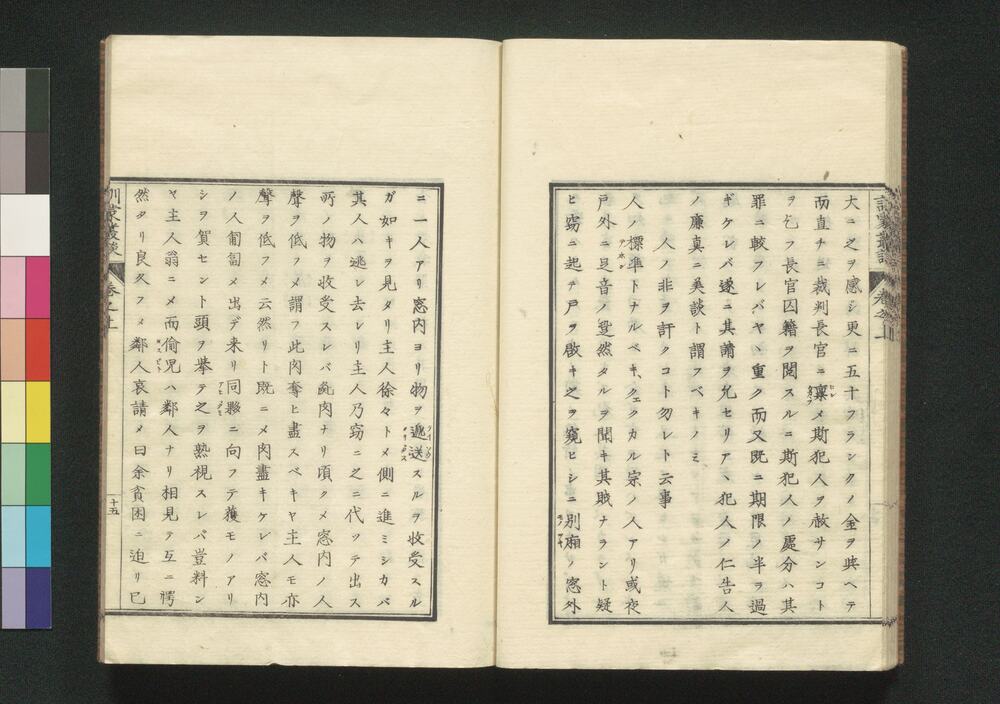 大ニ之ヲ感シ更ニ五十フランクノ金ヲ與ヘテ
而直チニ裁判長官ニ稟メ斯犯人ヲ赦サンコト
ヲ乞フ長官囚籍ヲ閲スルニ斯犯人ノ處分ハ其
罪ニ較フレバヤヽ重ク而又既ニ期限ノ半ヲ過
ギケレバ遂ニ其請ヲ允セリアヽ犯人ノ仁告人
ノ廉真ニ美談ト謂フベキノミ
人ノ非ヲ訐クコト勿レト云事
人ノ標準トナルベキ、クェクカル宗ノ人アリ或夜
戸外ニ足音ノ跫然タルヲ聞キ其賊ナラント疑
ヒ窈ニ起テ戸ヲ啟キ之ヲ窺ヒシニ別廂ノ窓外
ニ一人アリ窓内ヨリ物ヲ逓送スルヲ收受スル
ガ如キヲ見タリ主人徐々トメ側ニ進ミシカバ
其人ハ逃レ去レリ主人乃窈ニ之ニ代ツテ出ス
所ノ物ヲ收受スレバ肉ナリ頃クメ窓内ノ人
聲ヲ低フメ謂フ此肉奪ヒ盡スベキヤ主人モ亦
聲ヲ低フメ云然リト既ニメ肉盡キケレバ窓内
ノ人匍匐メ出デ来リ同夥ニ向フテ獲モノアリ
シヲ賀セント頭ヲ挙テ之ヲ熟視スレバ豈料ン
ヤ主人翁ニメ而偷児ハ鄰人ナリ相見テ互ニ愕
然タリ良久フメ鄰人哀請メ曰余貧困ニ迫リ已
巻之上
十五